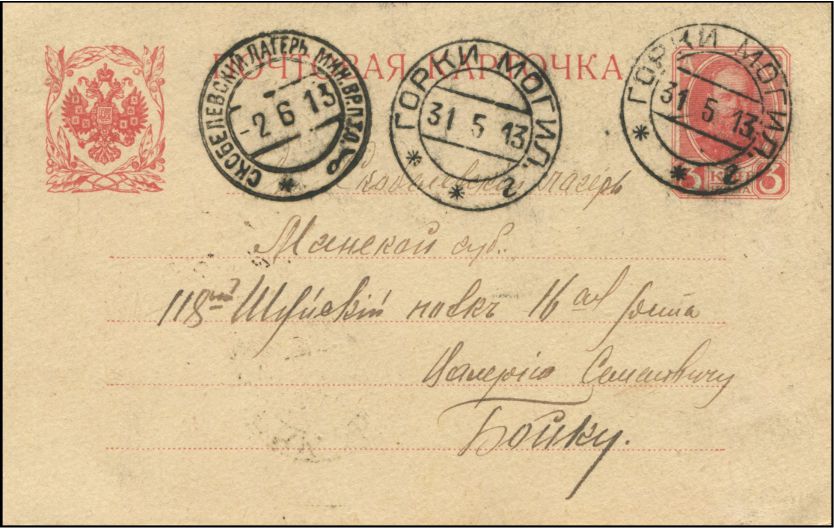 ПОЧТОВАЯ КАРТОЧКА
СКОБЕЛЕВСКІЙ ЛАГЕРЬ МИН.
-2 6 13
ГОРКИ МОГИЛ.
31 5 13
2
ГОРКИ МОГИЛ.
31 5 13
2
3 3
Скобелевскій лагерь
Минской губ.
118й Шуйскій полкъ 16ая рота
Валерію Семеновичу
Бойку.